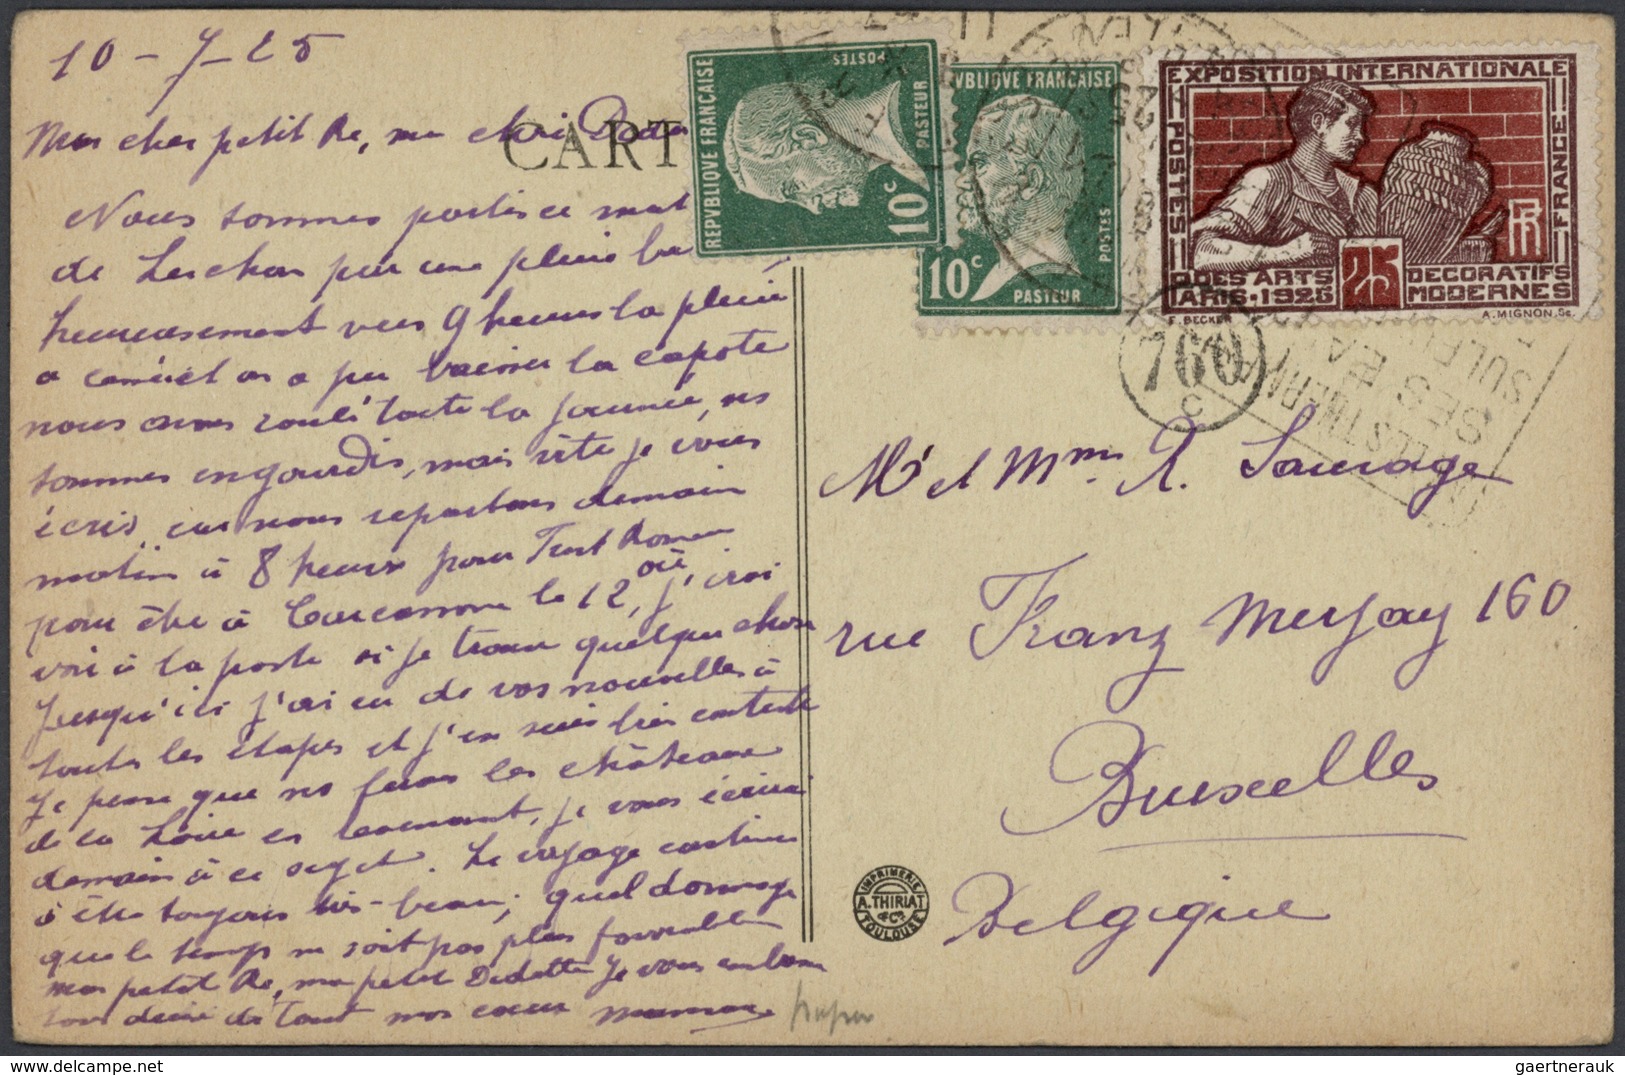 10-7-25
CART
Mon cher petit Ré, ma chérie Dedet
Nous sommes partis ce mat
de Luchon par une pluie ba
heureusement vers 9 heures la pluie
a cessé et on a pu baisser la capote
nous avons roulé toute la journée, ns
sommes engourdis, mais vite je vous
écris car nous repartons demain
matin à 8 heures pour Font Romeu
pour être à Carcassonne le 12, où j'irai
voir à la poste si je trouve quelque chose
Jusqu'ici j'ai eu de vos nouvelles à
toutes les étapes et j'en suis très contente
Je pense que ns ferons les châteaux
de la Loire en revenant, je vous écrirai
demain à ce sujet. Le voyage continue
à être toujours très-beau; quel dommage
que le temps ne soit pas plus favorable
mon petit Ré, ma petite Dedette je vous embrasse
tous deux de tout mon coeur maman
REPVBLIQUE FRANÇAISE
POSTES
10c
PASTEUR
VBLIQUE FRANÇAISE
10c
POSTES
PASTEUR
EXPOSITION INTERNATIONALE
POSTES
FRANCE
RF
DES ARTS 25 DECORATIFS
PARIS·1925 MODERNES
E. BECKER A. MIGNON, Sc.
760
C
SES EAUX
SULFU
Mr et Mme R. Sauvage
rue Franz Merjay 160
Bruxelles
Belgique
IMPRIMERIE
A. THIRIAT
& Cie
TOULOUSE
gaertnerauk